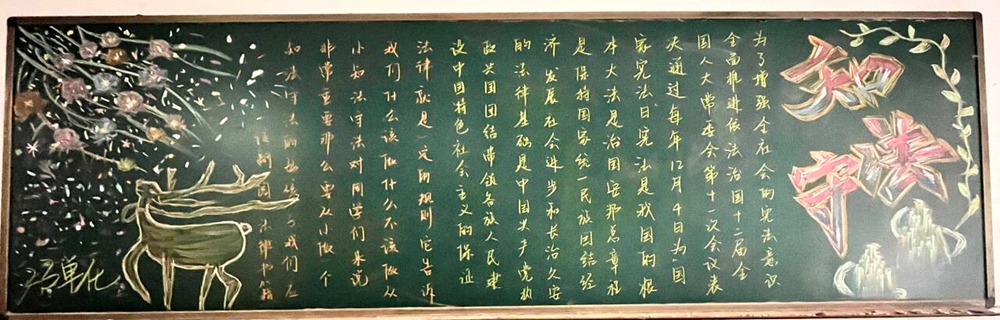 知
守法
为了增强全社会的宪法意识
全面推进依法治国十二届全
国人大常委会第十一次会议表
决通过每年12月4日为国
家宪法日宪法是我国的根
本大法是治国安邦总章程
是保持国家统一民族团结经
济发展社会进步和长治久安
的法律基础是中国共产党执
政兴国团结带领各族人民建
设中国特色社会主义的保证
法律就是一定的规则它告诉
我们什么该做什么不该做从
小知法守法对同学们来说
非常重要那么要从小做个
知法守法的 我们应